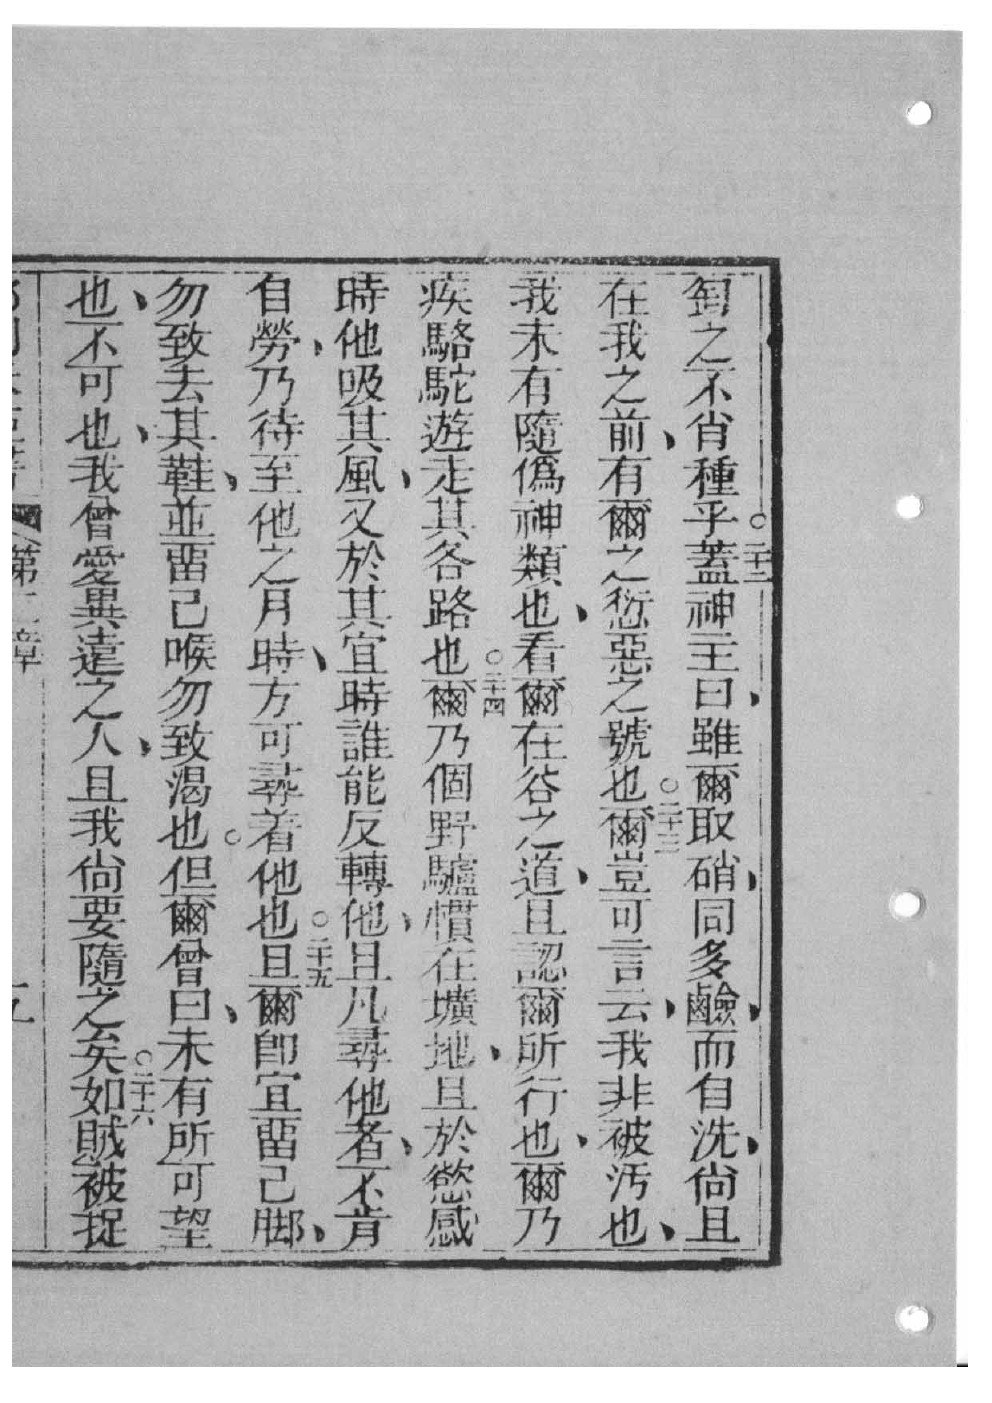 之不肖種乎○二十二蓋神主曰、雖爾取硝、同多鹼、而自洗、尙且
在我之前、有爾之愆惡之號也○二十三爾豈可言云、我非被汚也、
我未有隨僞神類也、看爾在谷之道、且認爾所行也、爾乃
疾駱駝遊走其各路也○二十四爾乃個野驢慣在壙地、且於慾感
時他吸其風、又於其宜時誰能反轉他、且凡尋他者、不肯
自勞、乃待至他之月時、方可尋着他也○二十五且爾卽宜畱己脚、
勿致去其鞋、並畱己喉勿致渴也。但爾曾曰、未有所可望
也、不可也、我曾愛異遠之人、且我尙要隨之矣○二十六如賊被捉
第二章